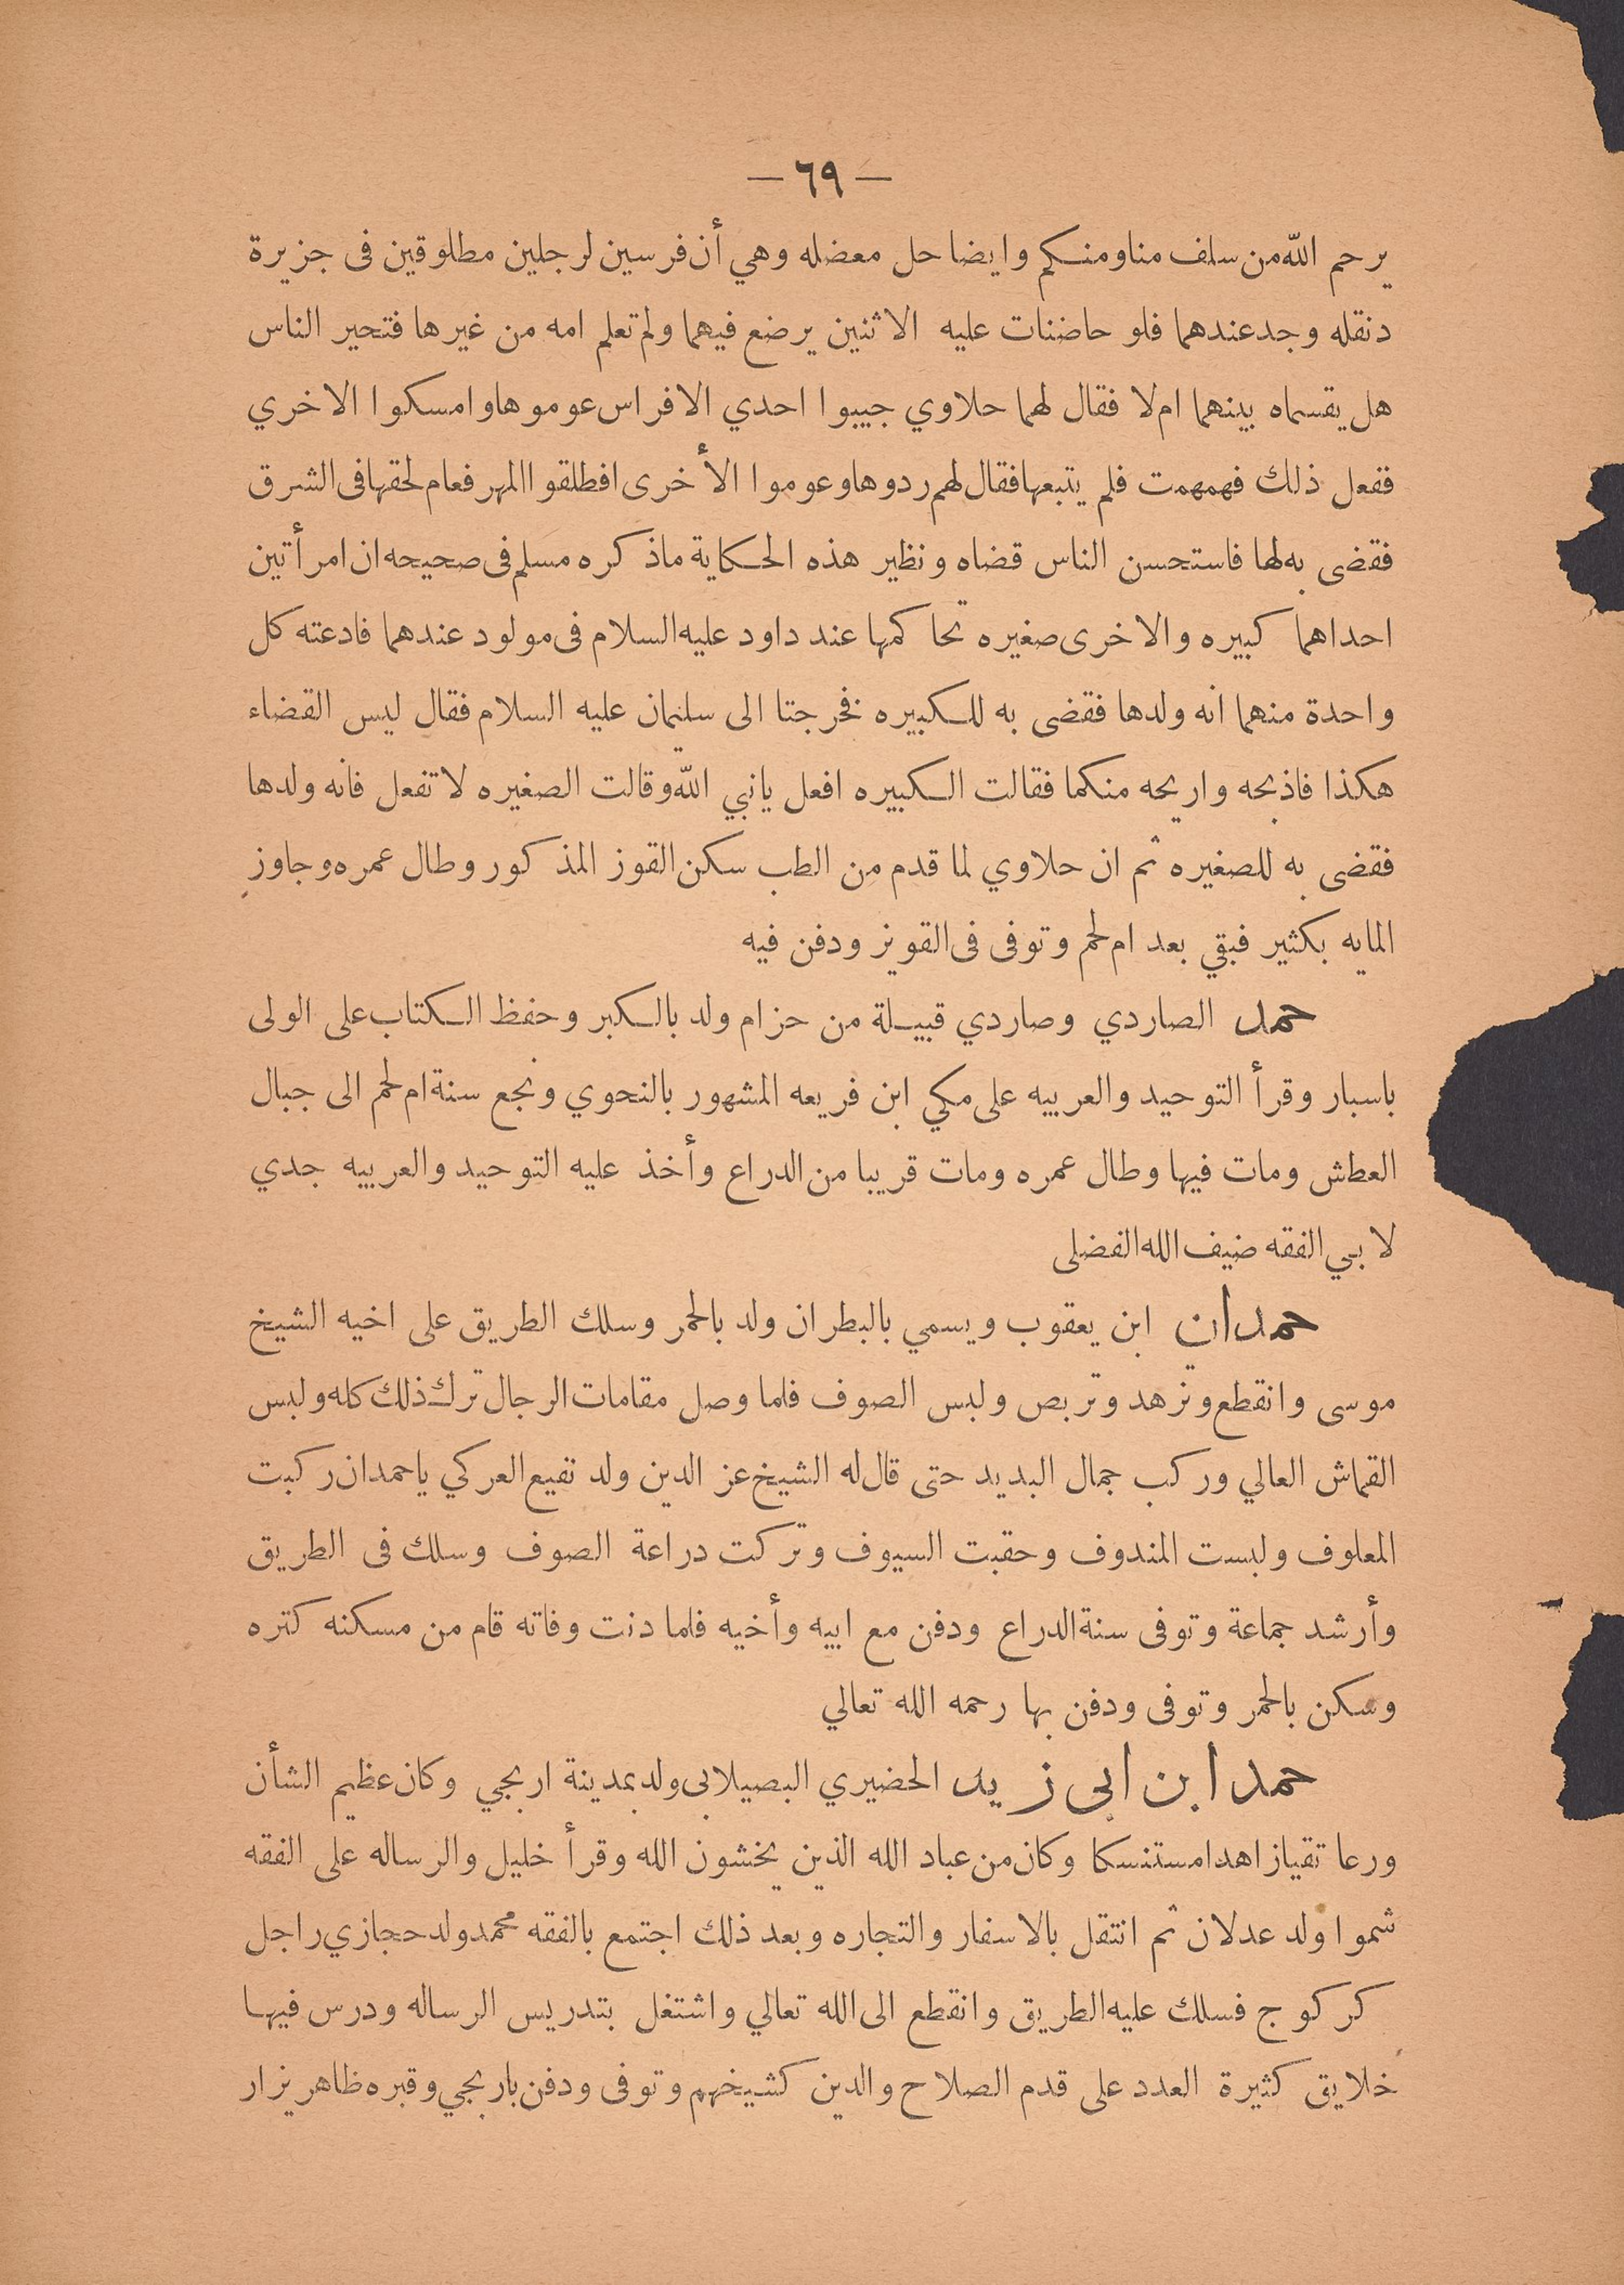 — ٦٩ —
يرحم الله من سلف منا ومنكم وايضا حل معضله وهي أن فرسين لرجلين مطلوقين فى جزيرة
دنقله وجد عندهما فلو حاضنات عليه الاثنين يرضع فيهما ولم تعلم امه من غيرها فتحير الناس
هل يقسماه بينهما ام لا فقال لهما حلاوي جيبوا احدي الافراس عوموها وامسكوا الاخري
ففعل ذلك فهمهمت فلم يتبعها فقال لهم ردوها وعوموا الأخرى افطلقوا المهر فعام لحقها فى الشرق
فقضى به لها فاستحسن الناس قضاه ونظير هذه الحكاية ماذكره مسلم فى صحيحه ان امرأتين
احداهما كبيره والاخرى صغيره تحاكمها عند داود عليه السلام فى مولود عندهما فادعته كل
واحدة منهما انه ولدها فقضى به للكبيره فخرجتا الى سليمان عليه السلام فقال ليس القضاء
هكذا فاذبحه واريحه منكما فقالت الكبيره افعل يانبي الله وقالت الصغيره لا تفعل فانه ولدها
فقضى به للصغيره ثم ان حلاوي لما قدم من الطب سكن القوز المذكور وطال عمره وجاوز
المايه بكثير فبقي بعد ام لحم وتوفى فى القويز ودفن فيه
حمد الصاردي وصاردي قبيلة من حزام ولد بالكبر وحفظ الكتاب على الولى
باسبار وقرأ التوحيد والعربيه على مكي ابن فريعه المشهور بالنحوي ونجع سنة ام لحم الى جبال
العطش ومات فيها وطال عمره ومات قريبا من الدراع وأخذ عليه التوحيد والعربيه جدي
لابي الفقه ضيف الله الفضلى
حمدان ابن يعقوب ويسمي بالبطران ولد بالحمر وسلك الطريق على اخيه الشيخ
موسى وانقطع وتزهد وتربص ولبس الصوف فلما وصل مقامات الرجال ترك ذلك كله ولبس
القماش العالي وركب جمال البديد حتى قال له الشيخ عز الدين ولد نفيع العركي ياحمدان ركبت
المعلوف ولبست المندوف وحقبت السيوف وتركت دراعة الصوف وسلك فى الطريق
وأرشد جماعة وتوفى سنة الدراع ودفن مع ابيه وأخيه فلما دنت وفاته قام من مسكنه كتره
وسكن بالحمر وتوفى ودفن بها رحمه الله تعالي
حمد ابن ابى زيد الحضيري البصيلابى ولد بمدينة اربجي وكان عظيم الشأن
ورعا تقيا زاهدا مستنسكا وكان من عباد الله الذين يخشون الله وقرأ خليل والرساله على الفقه
شموا ولد عدلان ثم انتقل بالاسفار والتجاره وبعد ذلك اجتمع بالفقه محمد ولد حجازي راجل
كركوج فسلك عليه الطريق وانقطع الى الله تعالي واشتغل بتدريس الرساله ودرس فيها
خلايق كثيرة العدد على قدم الصلاح والدين كشيخهم وتوفى ودفن باربجي وقبره ظاهر يزار